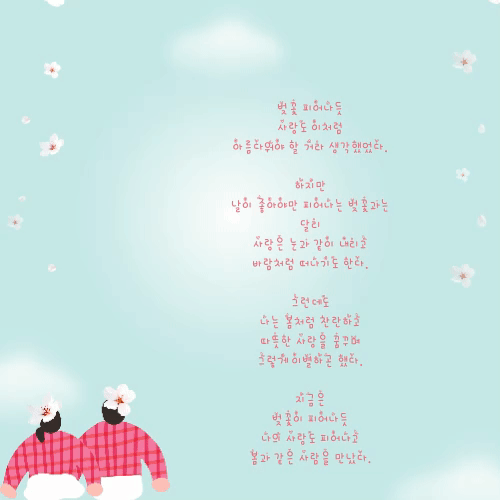 벚꽃 피어나듯
사랑도 이처럼
아름다워야 할 거라 생각했었다.
하지만
날이 좋아야만 피어나는 벚꽃과는
달리
사랑은 눈과 같이 내리고
바람처럼 떠나기도 한다.
그런데도
나는 봄처럼 찬란하고
따뜻한 사랑을 꿈꾸며
그렇게 이별하곤 했다.
지금은
벚꽃이 피어나듯
나의 사랑도 피어나고
봄과 같은 사람을 만났다.